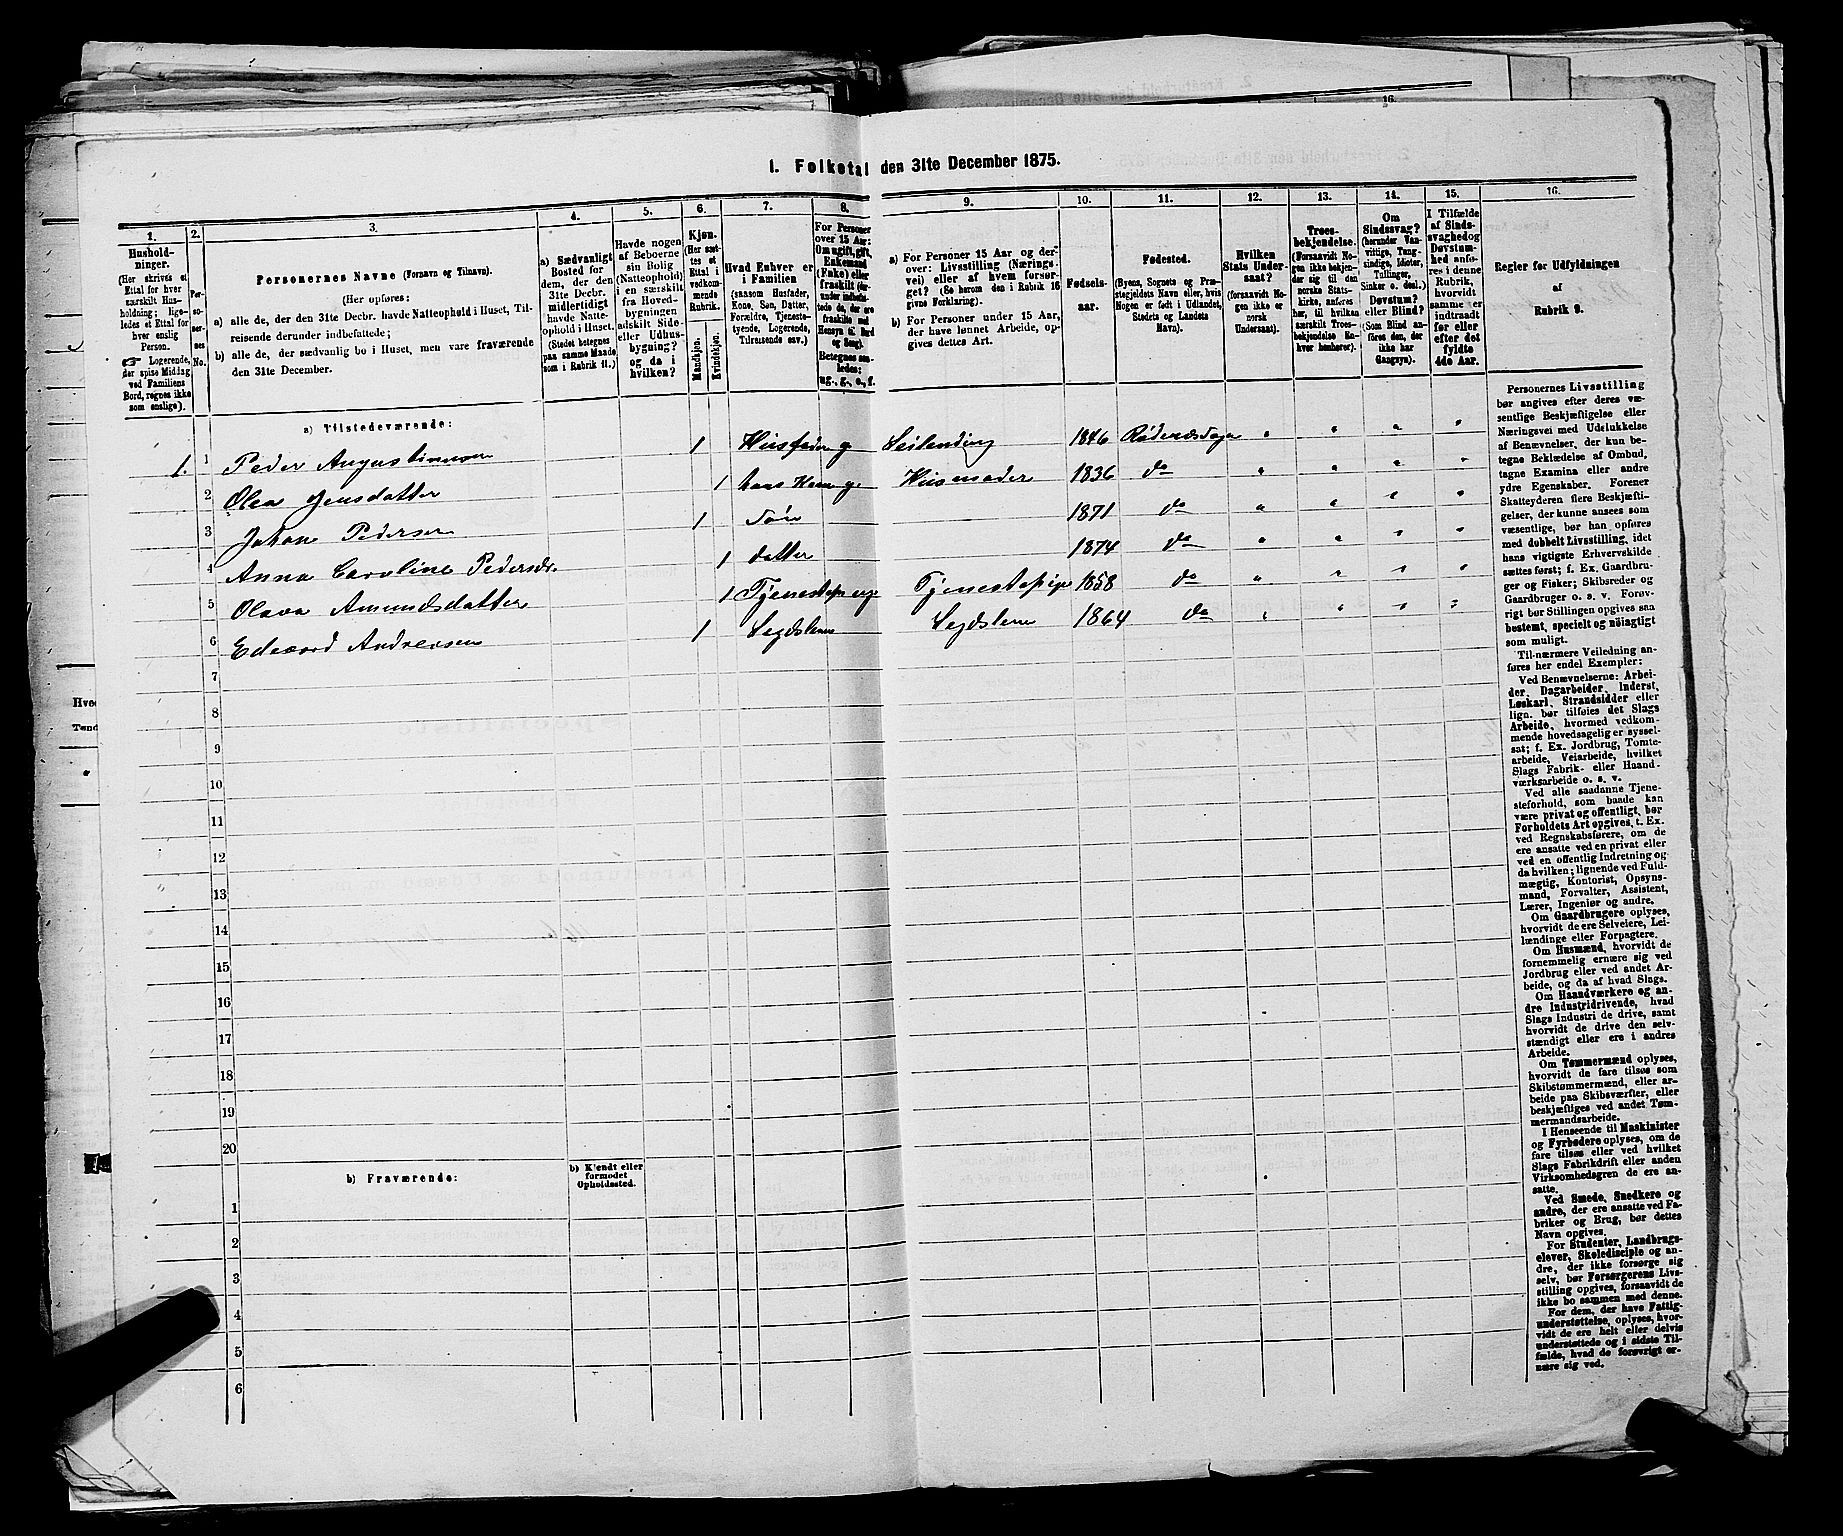 1. Folketal den 31te December 1875.
1.
Hushold-
ninger.
(Her skrives et
Ettal for hver
særskilt Hus-
holdning; lige-
ledes et Ettal for
hver enslig
Person.
☞ Logerende,
der spise Middag
ved Familiens
Bord, regnes ikke
som enslige).
2.
Per-
so-
ner-
nes
No.
3.
Personernes Navne (Fornavn og Tilnavn).
(Her opføres:
a) alle de, der den 31te Decbr. havde Natteophold i Huset, Til-
reisende derunder indbefattede;
b) alle de, der sædvanlig bo i Huset, men vare fraværende
den 31te December.
4.
a) Sædvanligt
Bosted for
dem, der den
31te Decbr.
midlertidigt
havde Natte-
ophold i Huset.
(Stedet betegnes
paa samme Maade
som i Rubrik 11.)
5.
Havde nogen
af Beboerne
sin Bolig
(Natteophold)
i en særskilt
fra Hoved-
bygningen
adskilt Side-
eller Udhus-
bygning?
og da i
hvilken?
6.
Kjøn.
(Her sæt-
tes et
Ettal i
vedkom-
mende
Rubrik.
Mandkjøn.
Kvindekjøn.
7.
Hvad Enhver er
i Familien
(saasom Husfader,
Kone, Søn, Datter,
Forældre, Tjeneste-
tyende, Logerende,
Tilreisende osv.)
8.
For Personer
over 15 Aar:
Om ugift, gift,
Enkemand
(Enke) eller
fraskilt
Betegnes saa-
ledes:
ug., g., e., f.
9.
a) For Personer 15 Aar og der-
over: Livsstilling (Nærings-
vei) eller af hvem forsør-
get? (Se herom den i Rubrik 16
givne Forklaring).
b) For Personer under 15 Aar,
der have lønnet Arbeide, op-
gives dettes Art.
10.
Fødsels-
aar.
11.
Fødested.
(Byens, Sognets og Præ-
stegjeldets Navn eller, hvis
Nogen er født i Udlandet,
Stedets og Landets
Navn).
12.
Hvilken
Stats Under-
saat?
(forsaavidt No-
gen ikke er
norsk
Undersaat).
13.
Troes-
bekjendelse.
(Forsaavidt No-
gen ikke bekjen-
der sig til den
norske Stats-
kirke, anføres
her, til hvilken
særskilt Troes-
bekjendelse En-
hver henhører).
14.
Om
Sindssvag?
(herunder Van-
vittige, Tung-
sindige, Idioter,
Tullinger,
Sinker o. desl.)
Døvstum?
eller Blind?
(Som Blind an-
føres den, der
ikke har
Gangsyn).
15.
I Tilfælde
af Sinds-
svaghed og
Døvstum-
hed anfø-
res i denne
Rubrik,
hvorvidt
samme er
indtraadt
før eller
efter det
fyldte
4de Aar.
16.
Regler for Udfyldningen
af
Rubrik 9.
a) Tilstedeværende:
1. 1 Peder Augustinusen 1 Husfader g Leilending 1846 Rødenæs " " " "
2 Olea Jensdatter 1 hans Kone g. Husmoder 1836 do " " " "
3 Johan Pedersen 1 Søn 1871 do " " " "
4 Anna Caroline Pedersdr. 1 datter 1874 do " " " "
5 Olava Amundsdatter 1 Tjenestepige ug Tjenestepige 1858 do " " " "
6 Edvard Andresen 1 Legdslem Legdslem 1864 do " " " "
7
8
9
10
11
12
13
14
15
16
17
18
19
20
b) Fraværende:
b) Kjendt eller
formodet
Opholdssted.
1
2
3
4
5
6
Personernes Livsstilling
bør angives efter deres væ-
sentlige Beskjæftigelse eller
Næringsvei med Udelukkelse
af Benævnelser, der kun be-
tegne Beklædelse af Ombud,
tegne Examina eller andre
ydre Egenskaber. Forener
Skatteyderen flere Beskjæfti-
gelser, der kunne ansees som
væsentlige, bør han opføres
med dobbelt Livsstilling, idet
hans vigtigste Erhvervskilde
sættes først; f. Ex. Gaardbru-
ger og Fisker; Skibsreder og
Gaardbruger o. s. v. Forøv-
rigt bør Stillingen opgives saa
bestemt, specielt og nøiagtigt
som muligt.
Til nærmere Veiledning an-
føres her endel Exempler:
Ved Benævnelserne: Arbei-
der, Dagarbeider, Inderst,
Løskarl, Strandsidder eller
lign. bør tilføies det Slags
Arbeide, hvormed vedkom-
mende hovedsagelig er syssel-
sat; f. Ex. Jordbrug, Tomte-
arbeide, Veiarbeide, hvilket
Slags Fabrik- eller Haand-
værksarbeide o. s. v.
Ved alle saadanne Tjene-
steforhold, som baade kan
være privat og offentligt, bør
Forholdets Art opgives, t. Ex.
ved Regnskabsførere, om de
ere ansatte ved en privat eller
ved en offentlig Indretning og
da hvilken; lignende ved Fuld-
mægtig, Kontorist, Opsyns-
mand, Forvalter, Assistent,
Lærer, Ingeniør og andre.
Om Gaardbrugere oplyses,
hvorvidt de ere Selveiere, Lei-
lændinge eller Forpagtere.
Om Husmænd, hvorvidt de
fornemmelig ernære sig ved
Jordbrug eller ved andet Ar-
beide, og da af hvad Slags.
Om Haandværkere og an-
dre Industridrivende, hvad
Slags Industri de drive, samt
hvorvidt de drive den selv-
stændigt eller ere i andres
Arbeide.
Om Tømmermænd oplyses,
hvorvidt de fare tilsøs som
Skibstømmermænd, eller ar-
beide paa Skibsværfter, eller
beskjæftiges ved andet Tøm-
mermandsarbeide.
I Henseende til Maskinister
og Fyrbødere oplyses, om de
fare tilsøs eller ved hvilket
Slags Fabrikdrift eller anden
Virksomhedsgren de ere an-
satte.
Ved Smede, Snedkere og
andre, der ere ansatte ved Fa-
briker og Brug, bør dettes
Navn opgives.
For Studenter, Landbrugs-
elever, Skoledisciple og an-
dre, der ikke forsørge sig
selv, bør Forsørgerens Livs-
stilling opgives, forsaavidt de
ikke bo sammen med denne.
For dem, der have Fattig-
understøttelse, oplyses, hvor-
vidt de ere helt eller delvis
understøttede og i sidste Til-
fælde, hvad de forøvrigt er-
nære sig ved.